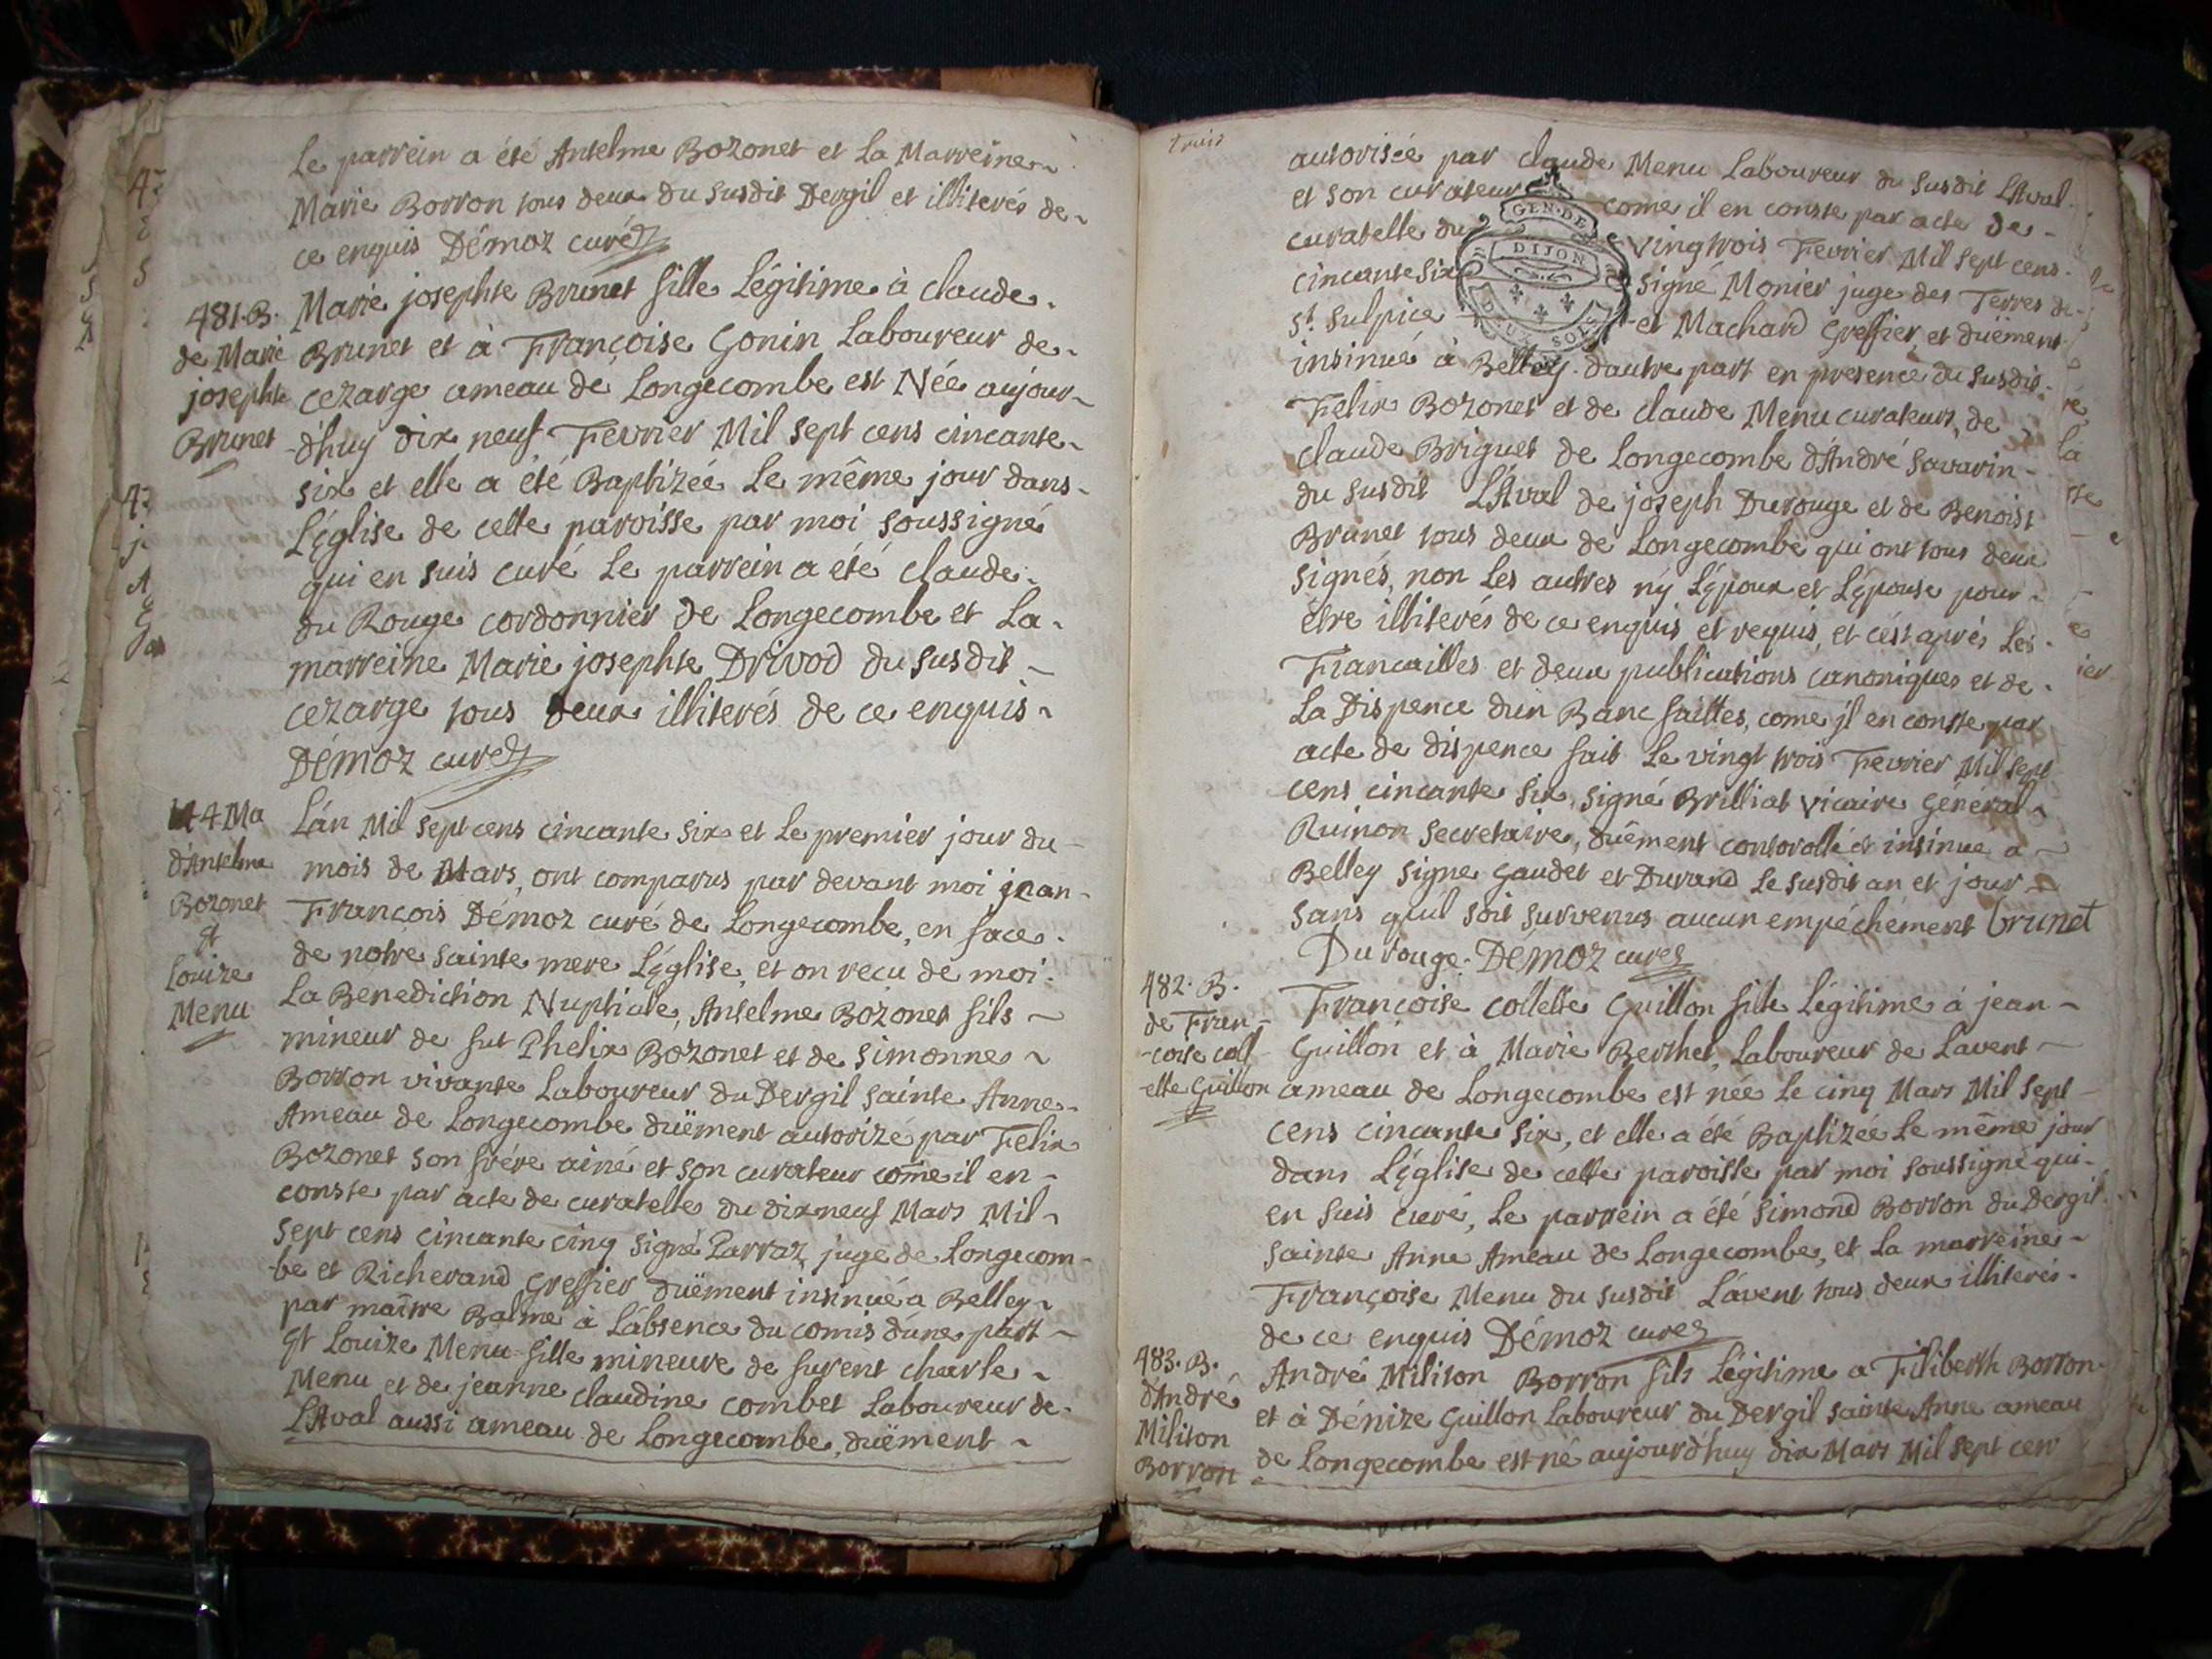 Le parrein a été Antelme Bozonet et La Marreine
Marie Borron tous deux du susdit Dergil et illiterés de
ce enquis Démoz curé
481. B.
de Marie
josephte
Brunet
Marie josephte Brunet fille Légitime à claude
Brunet et à Françoise Gonin Laboureur de
cezarge ameau de Longecombe est Née aujour-
d'huy dix neuf Fevrier Mil sept cens cincante
six et elle a été Baptizée Le même jour dans
L'église de cette paroisse par moi soussigné
qui en suis curé Le parrein a été claude
du Rouge cordonnier de Longecombe et La
marreine Marie josephte Drivod du susdit
cezarge tous deux illiterés de ce enquis
Démoz curé
Ma
d'Antelme
Bozonet
et
Louize
Menu
L'an Mil sept cens cincante six et Le premier jour du
mois de Mars, ont comparus par devant moi jean
François Démoz curé de Longecombe, en face
de notre sainte mere L'église, et on reçu de moi
La Benediction Nuptiale, Antelme Bozonet fils
mineur de fut Phelix Bozonet et de simonne
Borron vivante Laboureur du Dergil sainte Anne
Ameau de Longecombe duëment autorizé par Felix
Bozonet son frére ainé et son curateur come il en
conste par acte de curatelle du dixneuf Mars Mil
sept cens cincante cinq signé Parraz juge de Longecom-
be et Richerand Greffier duëment insinué a Belley
par maître Balme à L'absence du comis d'une part
et Louize Menu fille mineure de furent charle
Menu et de jeanne claudine combet Laboureur de
L'Aval aussi ameau de Longecombe, duëment
autorisée par claude Menu Laboureur du susdit L'Aval
et son curateur come il en conste par acte de
curatelle du vingtrois Fevrier Mil sept cens
cincante six signé Monier juge des Terres de
St. sulpice et Machard Greffier, et duëment
GEN. DE
DIJON
DEUX SOLS
insinué à Belley d'autre part en presence du susdit
Felix Bozonet et de claude Menu curateurs, de
claude Briguet de Longecombe d'André savarin
du susdit L'Aval de joseph Durouge et de Benoist
Brunet tous deux de Longecombe qui ont tous deux
signés, non Les autres ny L'époux et L'épouse pour
étre illiterés de ce enquis et requis, et c'est aprés Les
Fiancailles et deux publications canoniques et de
La Dispence d'un Banc faittes, come jl en conste par
acte de dispence fait Le vingt trois Fevrier Mil sept
cens cincante six, signé Brilliat vicaire Général
Ruinon secretaire, duëment controllé et insinue a
Belley signe Gaudet et Durand Le susdit an et jour
sans qu'il soit survenus aucun empéchement brunet
Durouge Démoz curé
482. B.
de Fran-
-coise coll
-ette Guillon
Francoise collette Guillon fille Légitime à jean
Guillon et à Marie Berthet, Laboureur de Lavent
ameau de Longecombe est née Le cinq Mars Mil sept
cens cincante six, et elle a été Baptizée Le même jour
dans L'église de cette paroisse par moi soussigné qui
en suis curé, Le parrein a été simond Borron du Dergil
sainte Anne Ameau de Longecombe, et La marreine
Françoise Menu du susdit L'avent tous deux illiterés
de ce enquis Démoz curé
483. B.
d'André
Militon
Borron
André Militon Borron fils Légitime a Filiberth Borron
et à Dénize Guillon Laboureur du Dergil sainte Anne ameau
de Longecombe est né aujourd'huy dix Mars Mil sept cen